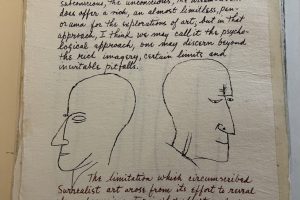 subconscious, the unconscious, the dream world
does offer a rich, an almost limitless, pan-
orama for the explorations of art, but in that
approach, I think we may call it the psycho-
logical approach, one may discern beyond
the rich imagery, certain limits and
inevitable pitfalls.
The limitation which circumscribed
Surrealist art arose from its effort to rival